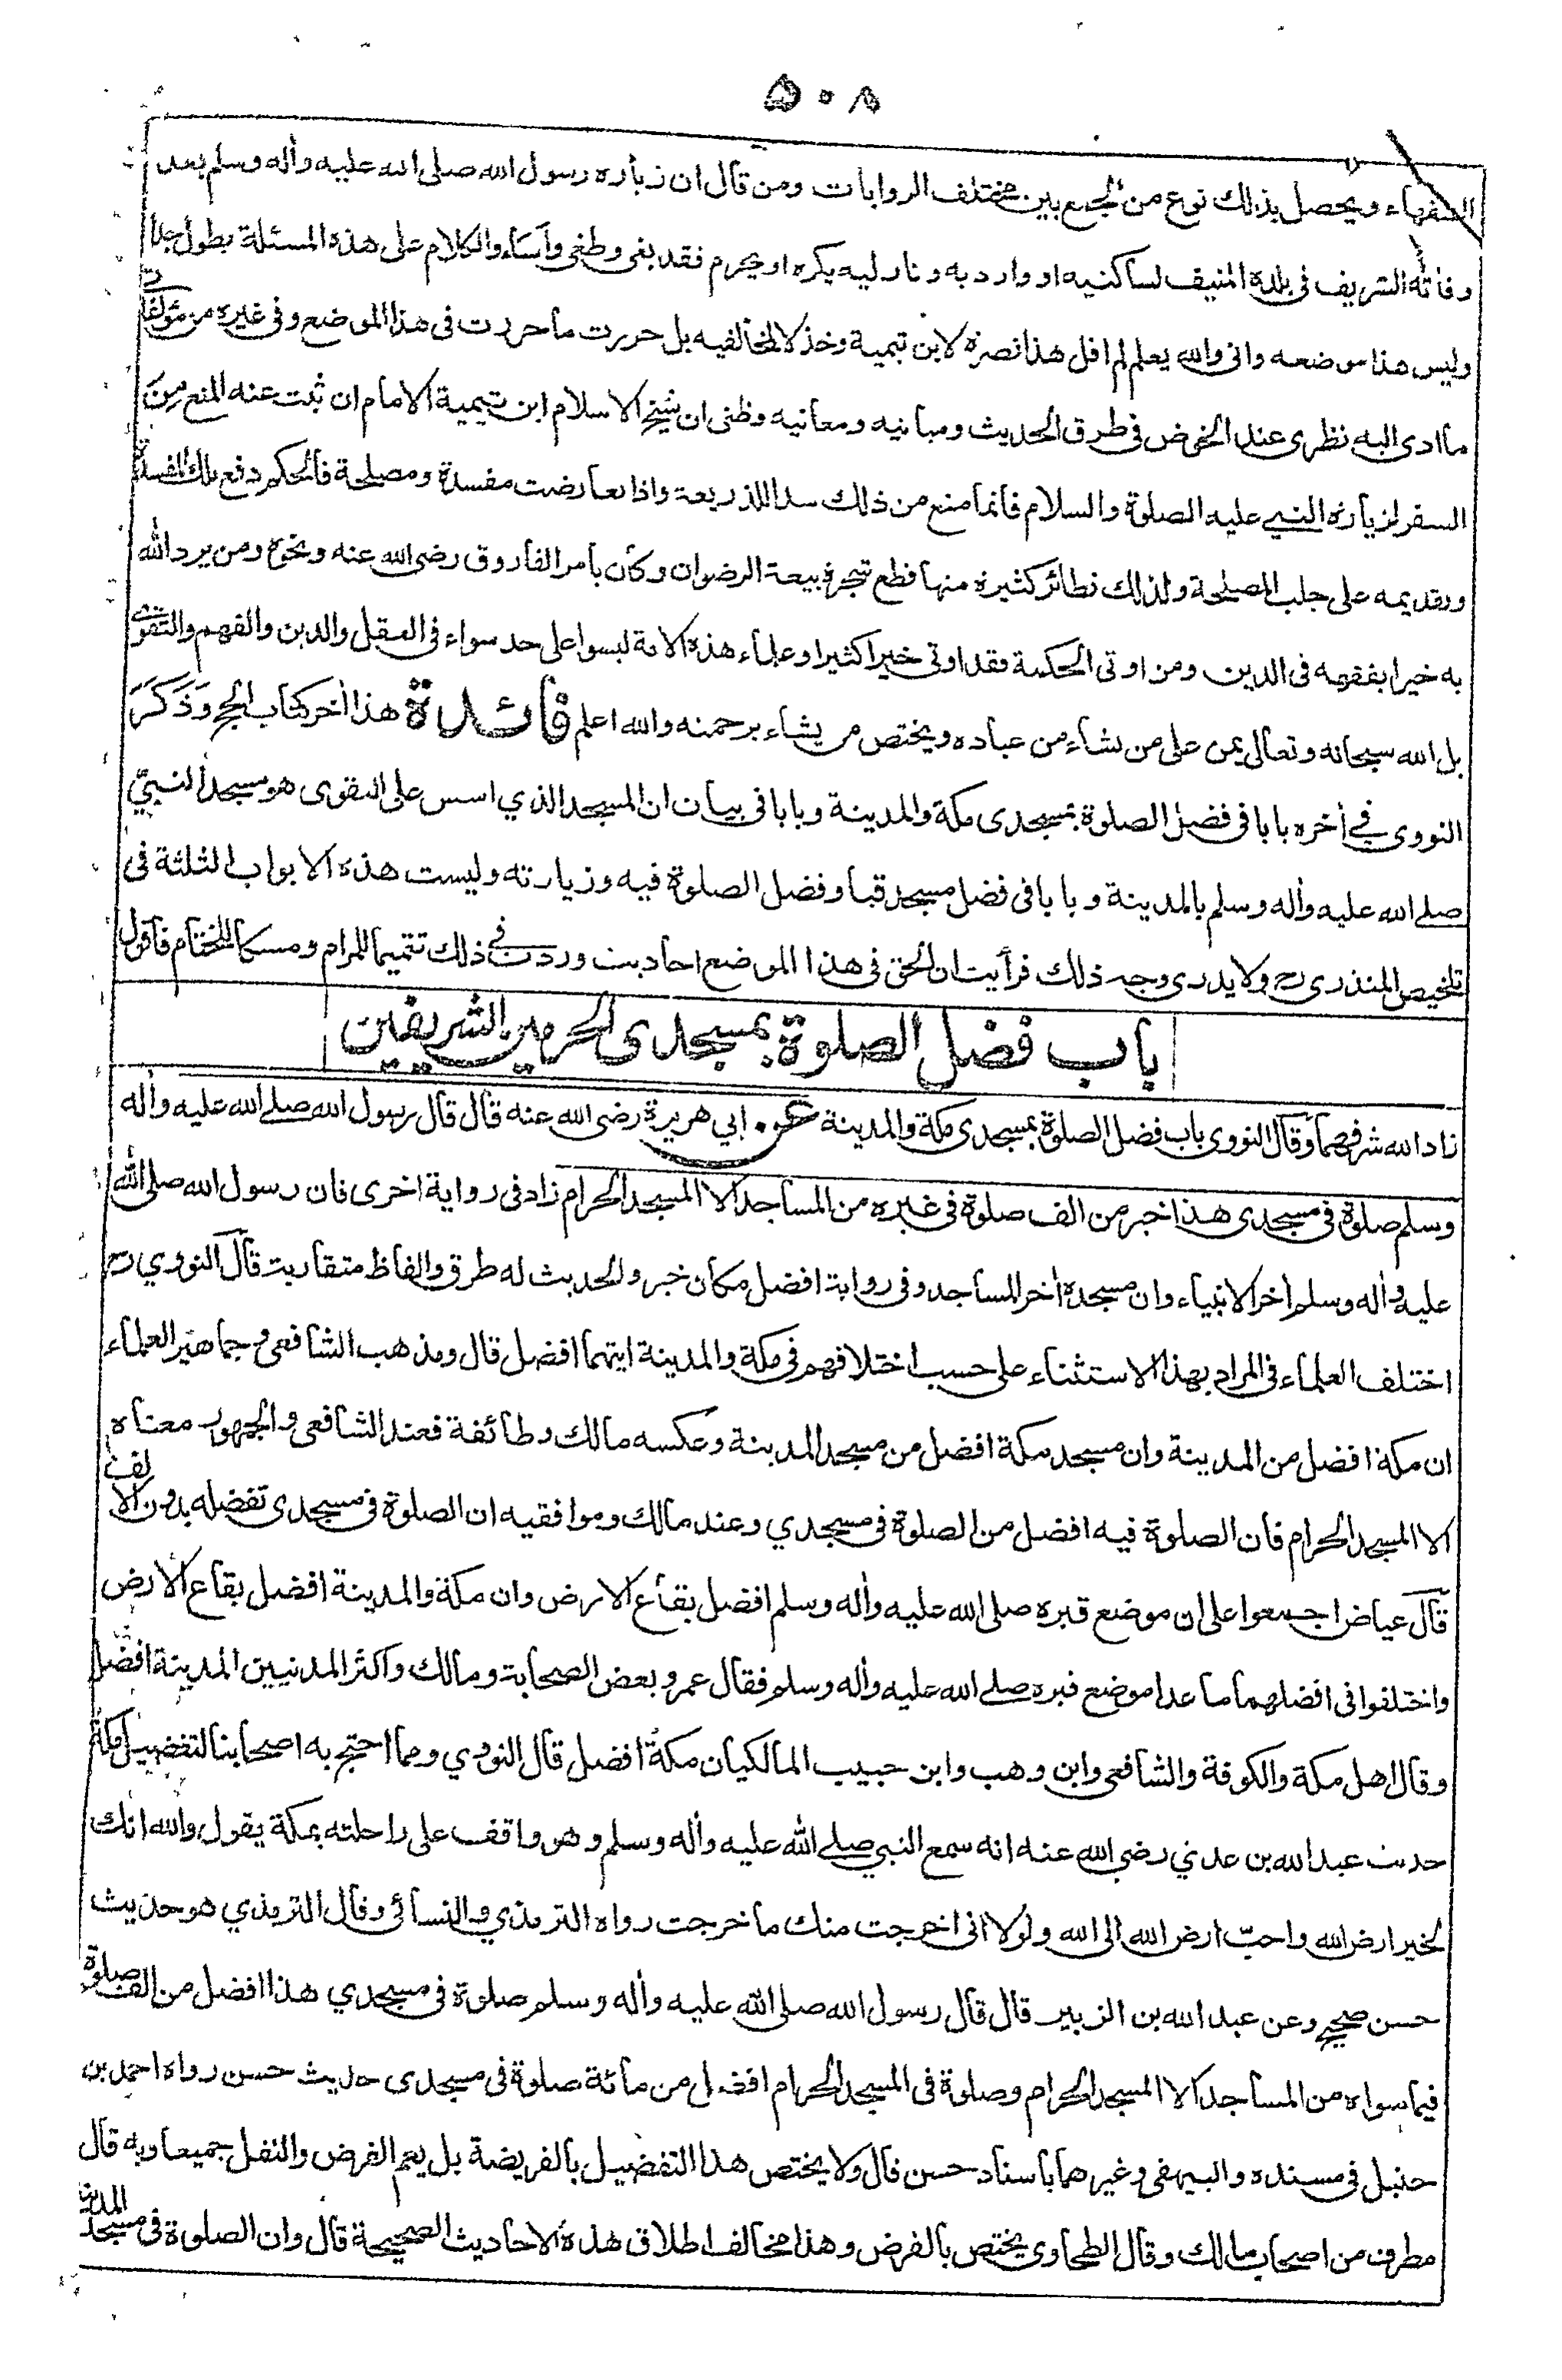 ٥٠٨
السفهاء ويحصل بذلك نوع من الجمع بين مختلف الروايات ومن قال ان زيارة رسول الله صلى الله عليه وأله وسلم بعد
وفاته الشريف فى بلده المنيف لساكنيه او وارد به و نار ليه يكره او يحرم فقد بغى وطغى وأساء والكلام على هذه المسئلة يطول جدا
وليس هذا موضعه وانى والله يعلم لم اقل هذا نصرة لابن تيمية وخذلا لمخالفيه بل حررت ما حررت فى هذا الموضع وفى غيره من مؤلفا
ما ادى اليه نظرى عند الخوض فى طرق الحديث ومبانيه ومعانيه وظنى ان شيخ الاسلام ابن تيمية الامام ان ثبت عنه المنع من
السفر لزيارة النبي عليه الصلوة والسلام فانما منع من ذلك سدا للذريعة واذا تعارضت مفسدة ومصلحة فالحكم دفع تلك المفسدة
وتقديمه على جلب المصلحة ولذلك نظائر كثيرة منها قطع شجرة بيعة الرضوان وكان بامر الفاروق رضى الله عنه ونحوه ومن يرد الله
به خيرا يفقهه فى الدين ومن اوتى الحكمة فقد اوتى خيرا كثيرا وعلماء هذه الامة ليسوا على حد سواء فى العقل والدين والفهم والتقوى
بل الله سبحانه وتعالى يمن على من يشاء من عباده ويختص من يشاء برحمته والله اعلم فائدة هذا أخر كتاب الحج وَذَكَرَ
النووى في أخره بابا فى فضل الصلوة بمسجدى مكة والمدينة وبابا فى بيان ان المسجد الذي اسس على التقوى هو مسجد النبيّ
صلے الله عليه وأله وسلم بالمدينة وبابا فى فضل مسجد قبا وفضل الصلوة فيه وزيارته وليست هذه الابواب الثلثة فى
تلخيص المنذرى رح ولا يدرى وجه ذلك فرأيت ان الحق فى هذا الموضع احاديث وردت في ذلك تتميما للمرام ومسكا للختام فاقول
باب فضل الصلوة بمسجدى الحرمين الشريفين
زاد الله شرفهما وقال النووى باب فضل الصلوة بمسجدى مكة والمدينة عن ابي هريرة رضى الله عنه قال قال رسول الله صلے الله عليه وأله
وسلم صلوة فى مسجدى هذا خير من الف صلوة فى غيره من المساجد الا المسجد الحرام زاد فى رواية اخرى فان رسول الله صلى الله
عليه وأله وسلم أخر الانبياء وان مسجده أخر المساجد وفى رواية افضل مكان خير والحديث له طرق والفاظ متقاربة قال النووي رح
اختلف العلماء فى المراد بهذا الاستثناء على حسب اختلافهم فى مكة والمدينة ايتهما افضل قال ومذهب الشافعى وجماهير العلماء
ان مكة افضل من المدينة وان مسجد مكة افضل من مسجد المدينة وعكسه مالك وطائفة فعند الشافعى والجمهور معناه
الا المسجد الحرام فان الصلوة فيه افضل من الصلوة فى مسجدي وعند مالك وموافقيه ان الصلوة فى مسجدى تفضله بدون الالف
قال عياض اجمعوا على ان موضع قبره صلى الله عليه وأله وسلم افضل بقاع الارض وان مكة والمدينة افضل بقاع الارض
واختلفوا فى افضلهما ما عدا موضع قبره صلے الله عليه وأله وسلم فقال عمر وبعض الصحابة ومالك واكثر المدنيين المدينة افضل
وقال اهل مكة والكوفة والشافعى وابن وهب وابن حبيب المالكيان مكة افضل قال النووي ومما احتج به اصحابنا لتفضيل مكة
حديث عبد الله بن عدي رضى الله عنه انه سمع النبي صلے الله عليه وأله وسلم وهو واقف على راحلته بمكة يقول والله انك
لخير ارض الله واحبّ ارض الله الى الله ولولا انى اخرجت منك ما خرجت رواه الترمذي والنسائى وقال الترمذي هو حديث
حسن صحيح وعن عبد الله بن الزبير قال قال رسول الله صلى الله عليه وأله وسلم صلوة فى مسجدي هذا افضل من الف صلوة
فيما سواه من المساجد الا المسجد الحرام وصلوة فى المسجد الحرام افضل من مائة صلوة فى مسجدى حديث حسن رواه احمد بن
حنبل فى مسنده والبيهقى وغيرهما باسناد حسن قال ولا يختص هذا التفضيل بالفريضة بل يعم الفرض والنفل جميعا وبه قال
مطرف من اصحاب مالك وقال الطحاوى يختص بالفرض وهذا مخالف اطلاق هذه الاحاديث الصحيحة قال وان الصلوة فى مسجد المدينة